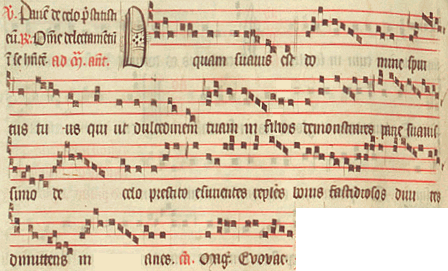 V. Panē de celo p̄stitisti
eis. R. Om̄e delectamentū
ī se hn̄tē. ad m̄. ant. O quam suauis est do mine spiri
tus tu us qui ut dulcedinem tuam in filios demonstrares pane suauis
simo de celo prestito esurientes reples bonis fastidiosos diui tes
dimittens in anes. Evovae.